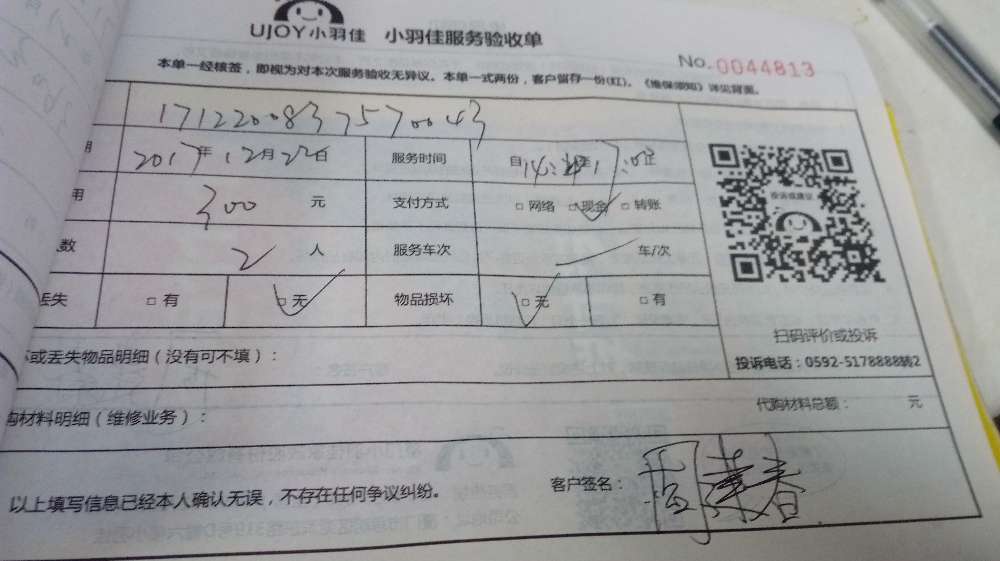 UJOY小羽佳 小羽佳服务验收单
No.0044813
本单一经核签，即视为对本次服务验收无异议。本单一式两份，客户留存一份(红)。《维保须知》详见背面。
1712200837570043
期 2017年12月22日 服务时间 自14: 至17:00止
用 300 元 支付方式 □网络 □现金 □转账
数 2 人 服务车次 车/次
丢失 □有 □无 物品损坏 □无 □有
投诉或建议
扫码评价或投诉
投诉电话：0592-5178888转2
坏或丢失物品明细（没有可不填）：
购材料明细（维修业务）： 代购材料总额： 元
以上填写信息已经本人确认无误，不存在任何争议纠纷。 客户签名：